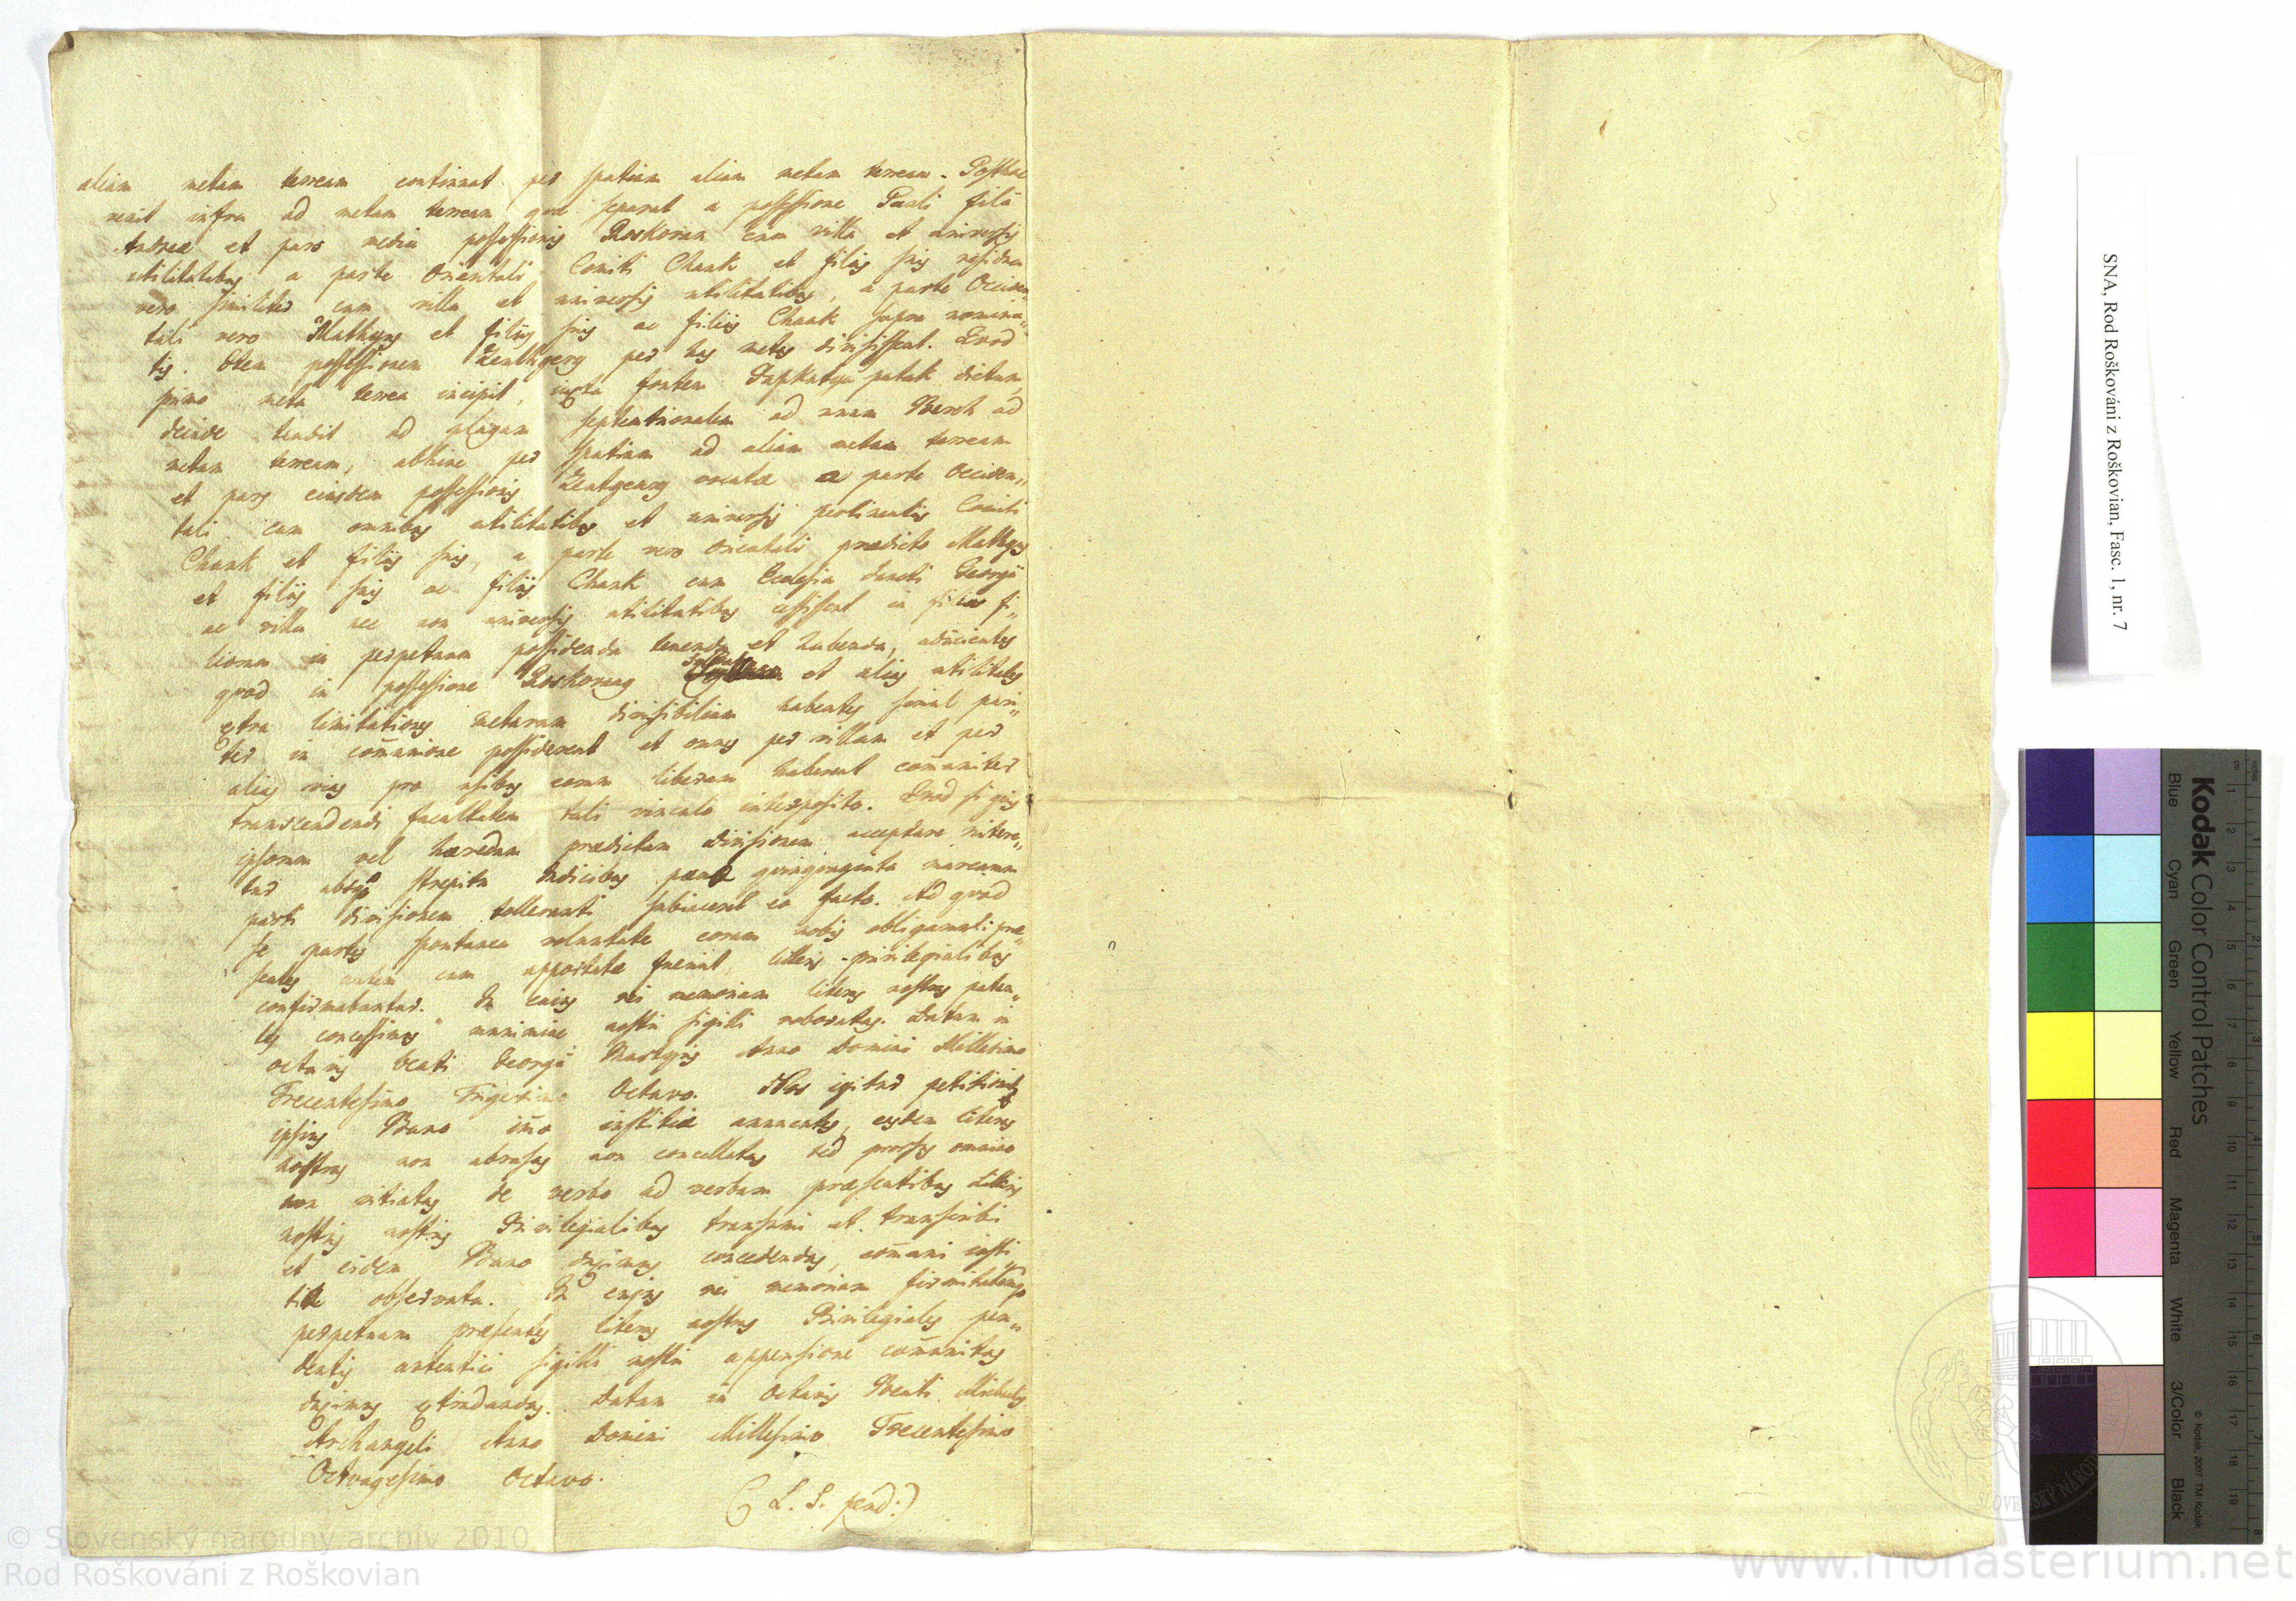 aliam metam terream continuat per spatium aliam metam terream. Posthac
venit infra ad metam terream quæ separat a possessione Pauli filii
Andreæ et pars media possessionis Roskovan cum villa et universis
utilitatibus a parte Orientali Comiti Chank et filiis suis residua
vero similiter cum villa et universis utilitatibus, a parte Occiden„
tali vero Mathyus et filiis suis ac filiis Chank supra nomina„
tis. Item possessionem Zenthgerg per has metas divisissent. Quod
primo meta terrea incipit, iuxta fontem patak dictum,
deinde tendit ad plagam septentrionalem ad unam Berch ad
metam terream, abhinc per spatium ad aliam metam terream
et pars eiusdem possessionis Zentgeurg vocatæ a parte Occiden„
tali cum omnibus utilitatibus et universis pertinentiis Comiti
Chank et filiis suis, a parte vero orientali prædicto Mathyus
et filiis suis ac filiis Chank cum Ecclesia Sancti Georgii
ac villa nec non universis utilitatibus cessissent in filios fi„
liorum in perpetuum possidenda tenenda et habenda, adiicientes
quod in possessione Roskovany et alias utilitates
extra limitationes metarum divisibilium habentes simul pari„
ter in com̄unione possiderent et omnes per villam et per
alias vias pro usibus eorum liberam haberent com̄uniter
transcendendi facultatem tali vinculo interposito. Quod si quis
ipsorum vel hæredum prædictam divisionem acceptare nitere„
tur absque strepitu Iudicibus pæna quinquaginta marcarum
parti divisionem tolleranti subiaceret eo facto. Ad quod
se partes spontanea voluntate coram nobis obligarunt: præ„
sentes autem cum apportatæ fuerint, litteris privilegialibus
confirmabuntur. In cuius rei memoriam literas nostras paten„
tes concessimus munimine nostri sigilli roboratas. Datum in
octavis beati Georgii Martyris Anno Domini Millesimo
Trecentesimo Trigesimo Octavo. Nos igitur petitionibus
ipsius Bano im̄o iustitiæ annuentes, easdem literas
nostras non abrasas non concellatas sed prorsus omnino
non vitiatas de verbo ad verbum præsentibus Literis
nostris nostris Privilegialibus transumi et transcribi
et eidem Bano duximus concedendas, com̄uni iusti„
tiæ observata. In cujus rei memoriam firmitatemque
perpetuam præsentes literas nostras Privilegiales pen„
dentis autentici sigilli nostri appensione com̄unitas
duximus extradandas. Datum in Octavis Beati Michaelis
Archangeli Anno Domini Millesimo Trecentesimo
Octvagesimo Octavo.
(L. S. pend:)
SNA, Rod Roškováni z Roškovian, Fasc. 1, nr. 7
Kodak Color Control Patches
Blue Cyan Green Yellow Red Magenta White 3/Color Black
© Kodak, 2007 TM: Kodak
© Slovenský národný archív 2010
Rod Roškováni z Roškovian
www.monasterium.net